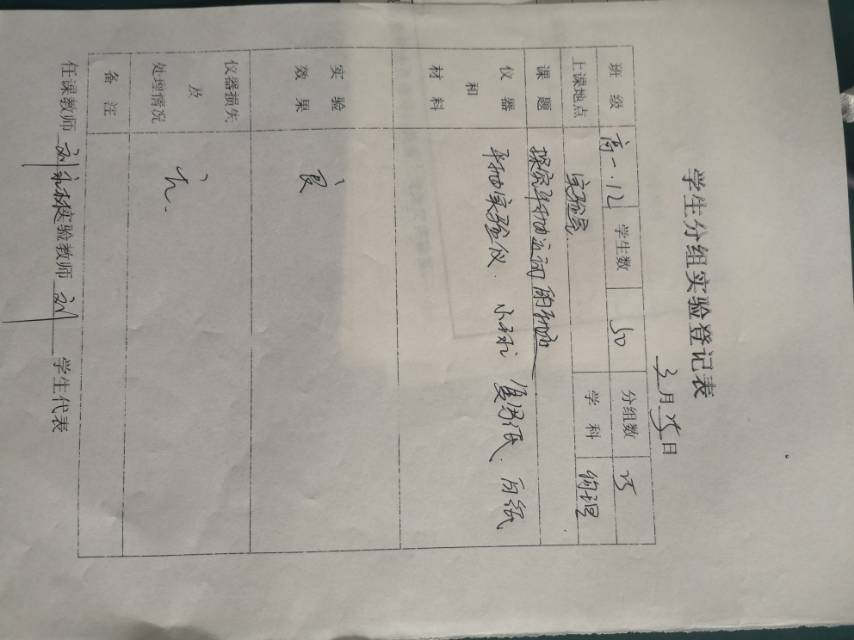 学生分组实验登记表
3月25日
班级 高一.12 学生数 50 分组数 25
上课地点 实验室 学科 物理
课题 探究平抛运动的规律
仪器和材料 平抛实验仪. 小球. 复写纸. 白纸
实验效果 良
仪器损失及处理情况 无.
备注
任课教师 刘 实验教师 刘 学生代表